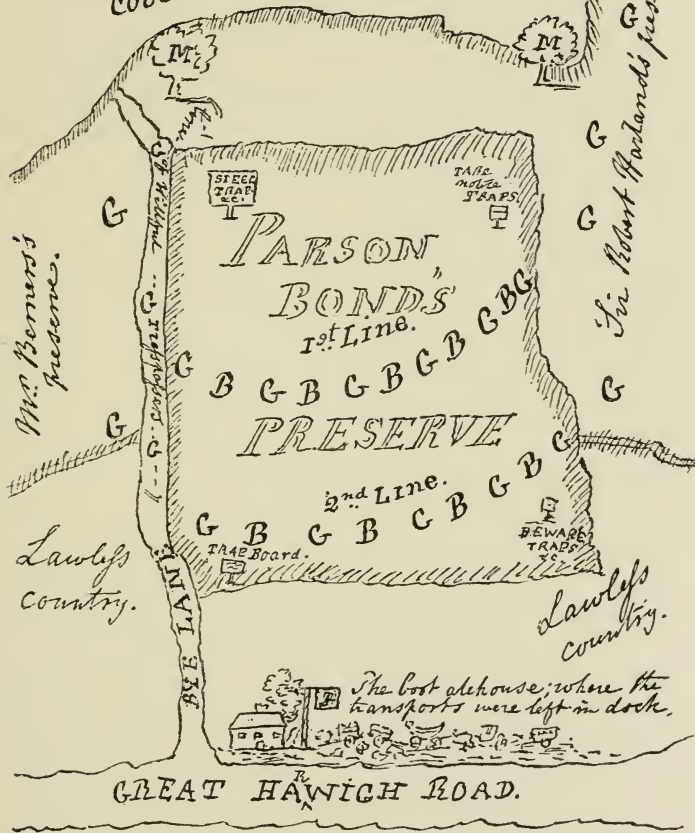 M
M
G
G
STEEL
TRAP
&c.
TAKE
notice
TRAPS.
G
G
Mr. Berners's
preserve.
Sir Robert Harland's
PARSON
BOND'S
1st Line.
G B G B G B G B G B G
PRESERVE
G
G
2nd Line.
G B G B G B G B G
TRAP Board.
BEWARE
TRAPS
&c
G G
Lawless
country.
Lawless
country.
BYE LANE
The boot alehouse; where the
transports were left in dock.
GREAT HARWICH ROAD.